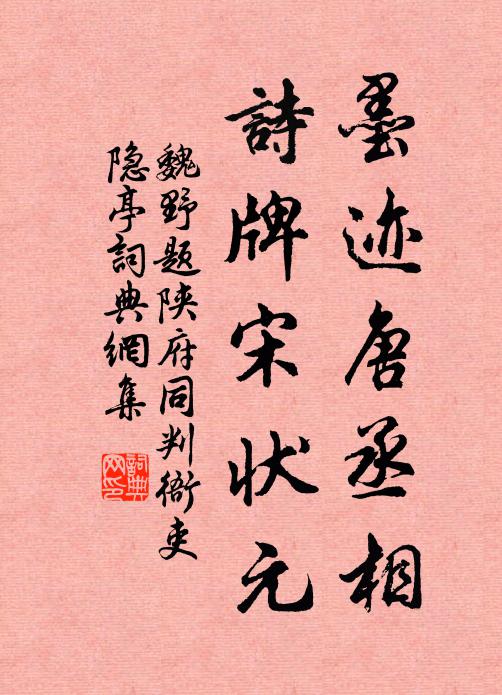 墨迹唐丞相
詩牌宋状元
魏野题陕府同判衙吏
隐亭詞典網集
詞典
网印